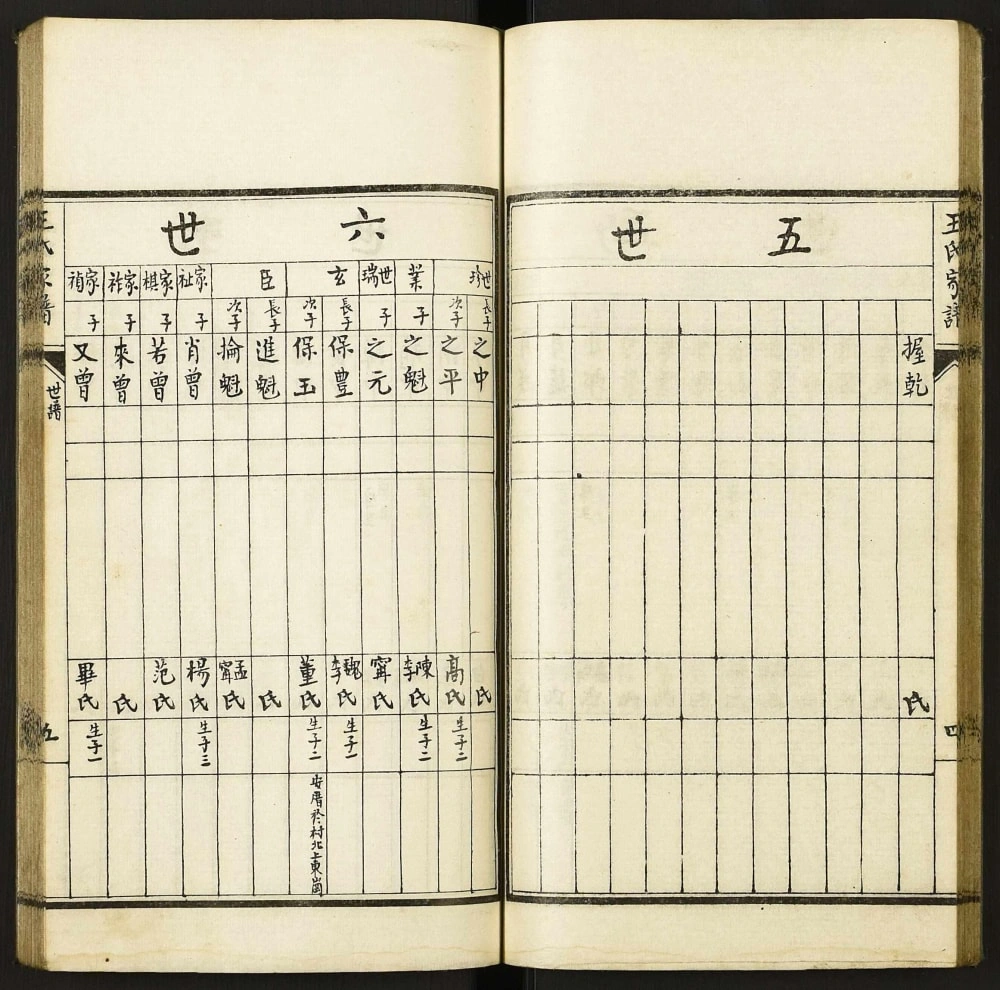 王氏家譜
五世
握乾
氏
四
六世
世珍 長子 之中 氏
次子 之平 高氏 生子二
業 子 之魁 陳李氏 生子二
世瑞 子 之元 甯氏
玄 長子 保豊 魏李氏 生子一
次子 保玉 董氏 生子二 安厝於村北上東崗
臣 長子 進魁 氏
次子 掄魁 孟甯氏
家祉 子 肖曾 楊氏 生子三
家棋 子 若曾 范氏
家祚 子 來曾 氏
家禎 子 又曾 畢氏 生子一
王氏家譜
世譜
五